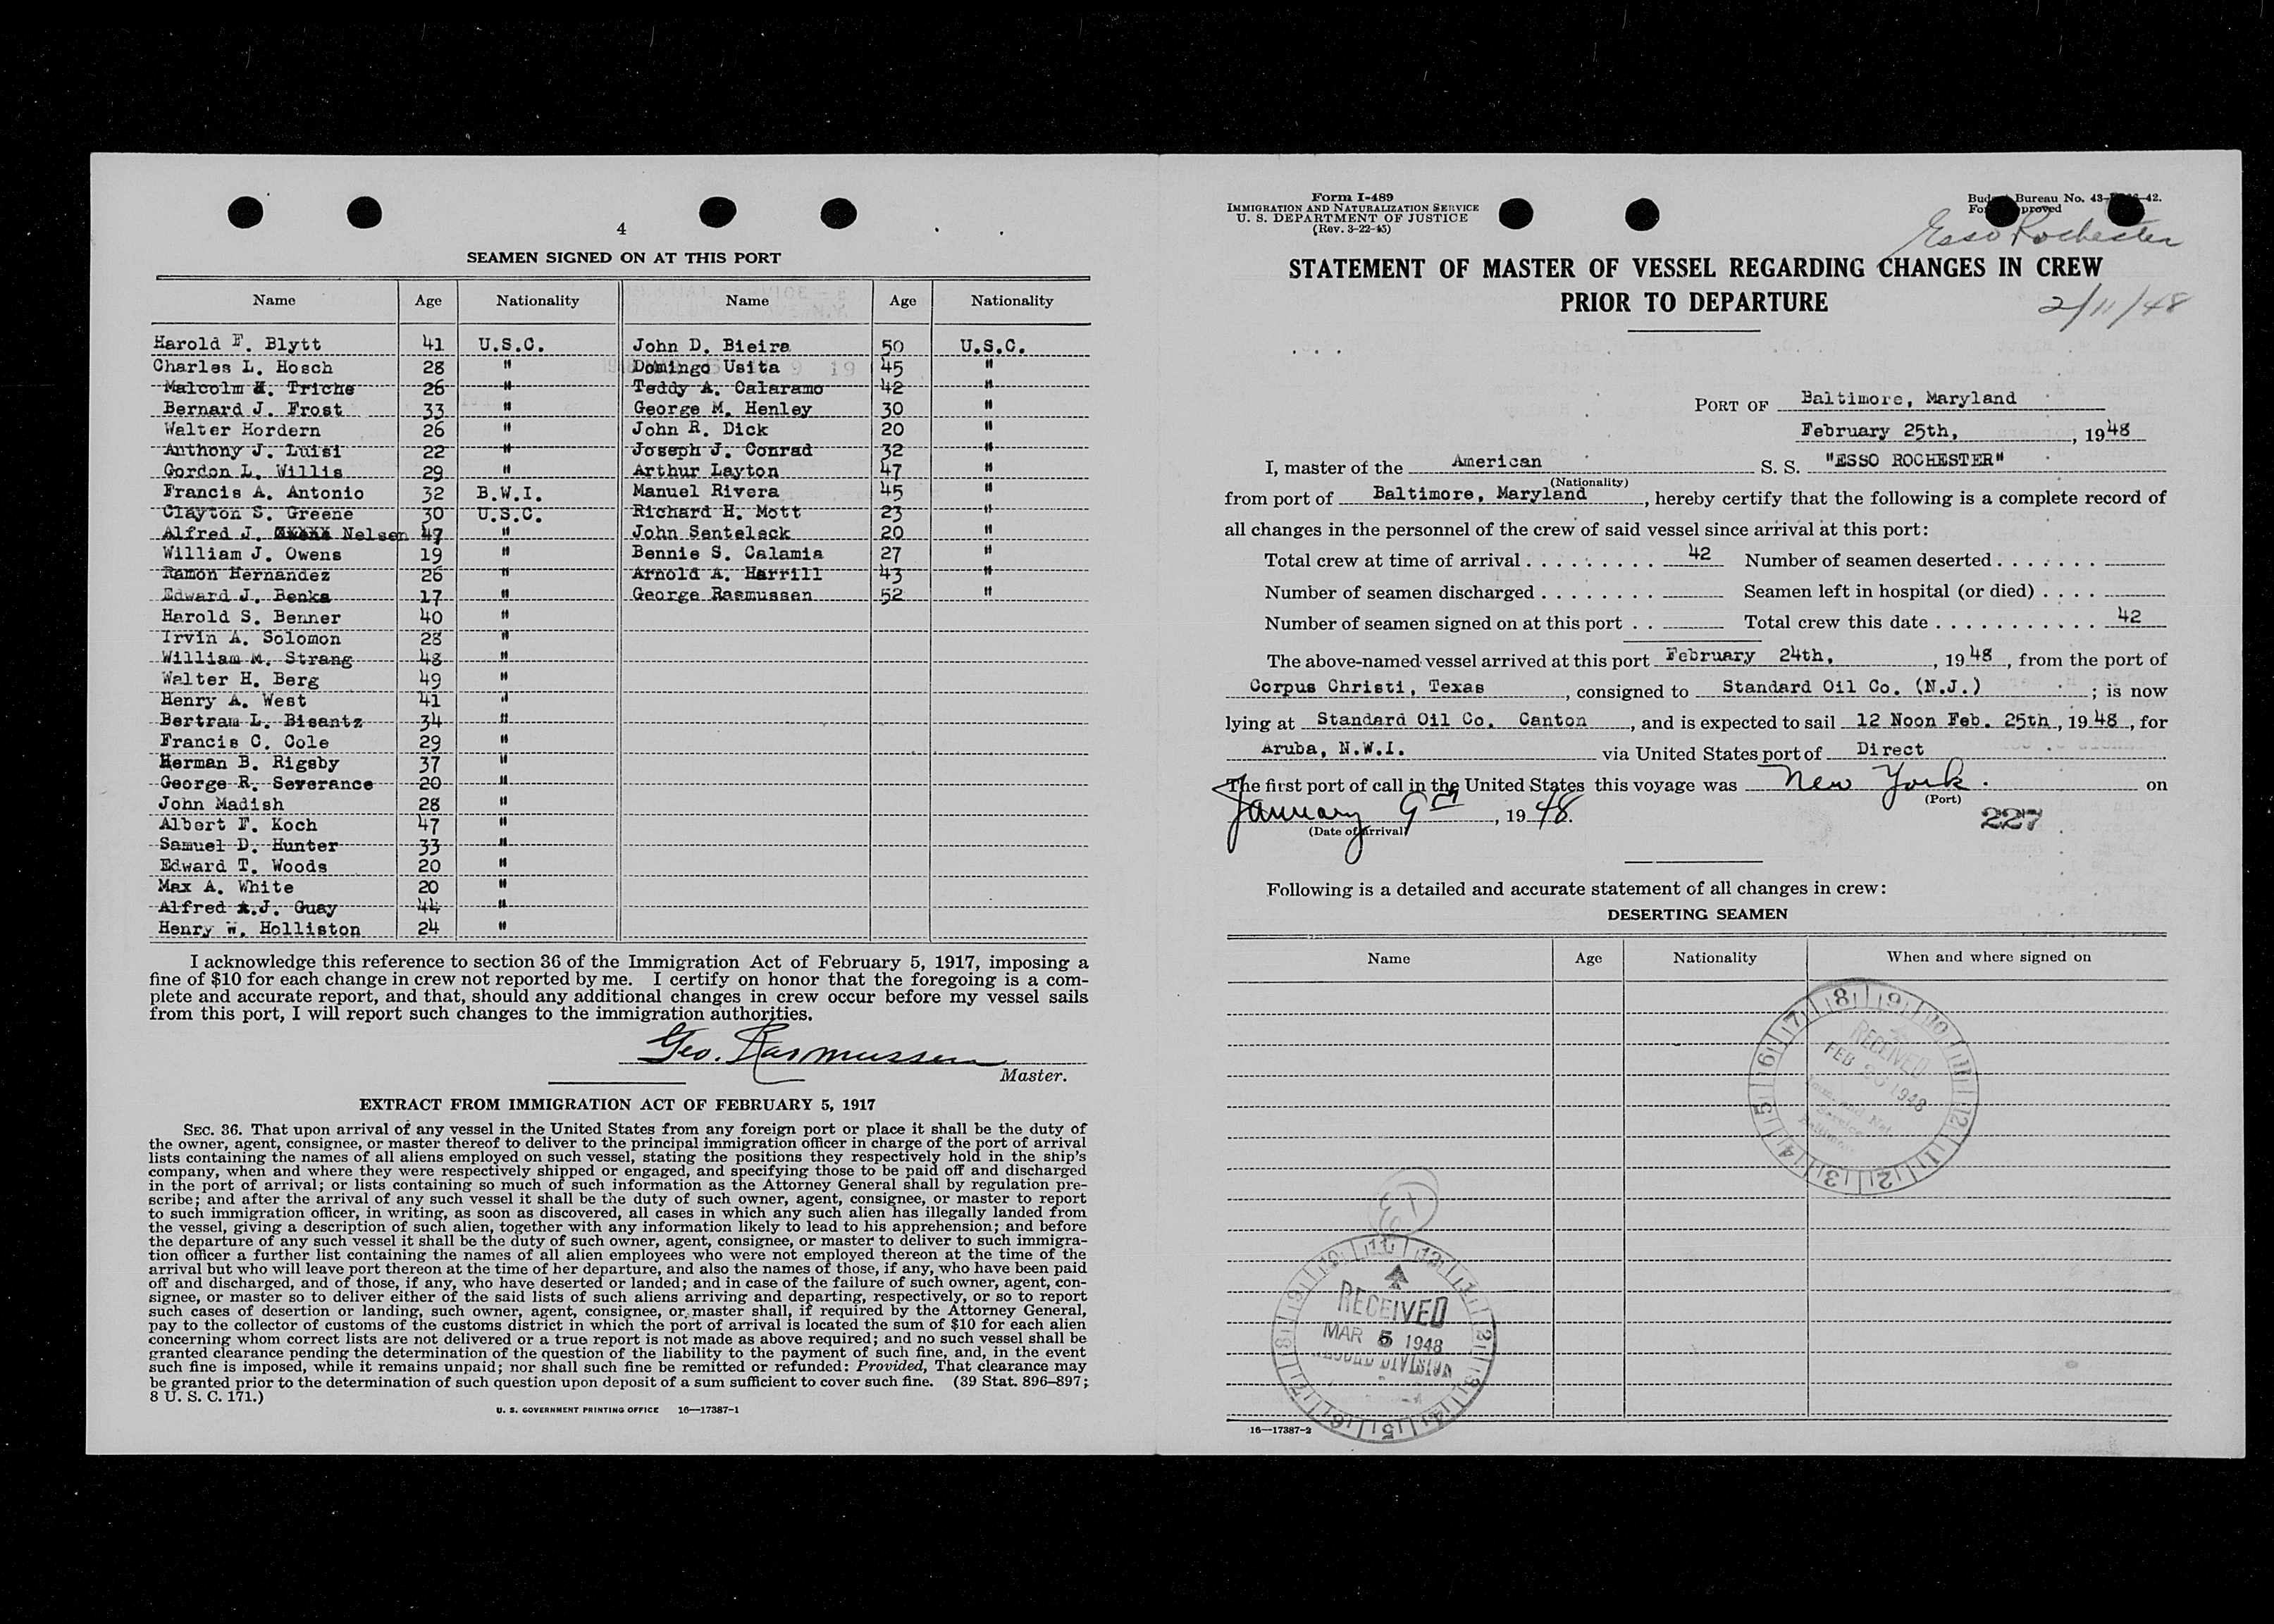 4
SEAMEN SIGNED ON AT THIS PORT
Name Age Nationality Name Age Nationality
Harold F. Blytt 41 U.S.C. John D. Bieira 50 U.S.C.
Charles L. Hosch 28 " Domingo Usita 45 "
Malcolm H. Triche 26 " Teddy A. Calaramo 42 "
Bernard J. Frost 33 " George M. Henley 30 "
Walter Hordern 26 " John R. Dick 20 "
Anthony J. Luisi 22 " Joseph J. Conrad 32 "
Gordon L. Willis 29 " Arthur Layton 47 "
Francis A. Antonio 32 B.W.I. Manuel Rivera 45 "
Clayton S. Greene 30 U.S.C. Richard H. Mott 23 "
Alfred J. Nelsen 47 " John Senteleck 20 "
William J. Owens 19 " Bennie S. Calamia 27 "
Ramon Hernandez 26 " Arnold A. Harrill 43 "
Edward J. Benka 17 " George Rasmussen 52 "
Harold S. Benner 40 "
Irvin A. Solomon 28 "
William M. Strang 48 "
Walter H. Berg 49 "
Henry A. West 41 "
Bertram L. Bisantz 34 "
Francis C. Cole 29 "
Herman B. Rigsby 37 "
George R. Severance 20 "
John Madish 28 "
Albert F. Koch 47 "
Samuel D. Hunter 33 "
Edward T. Woods 20 "
Max A. White 20 "
Alfred A.J. Guay 44 "
Henry W. Holliston 24 "
I acknowledge this reference to section 36 of the Immigration Act of February 5, 1917, imposing a
fine of $10 for each change in crew not reported by me. I certify on honor that the foregoing is a com-
plete and accurate report, and that, should any additional changes in crew occur before my vessel sails
from this port, I will report such changes to the immigration authorities.
Geo. Rasmussen
Master.
EXTRACT FROM IMMIGRATION ACT OF FEBRUARY 5, 1917
SEC. 36. That upon arrival of any vessel in the United States from any foreign port or place it shall be the duty of
the owner, agent, consignee, or master thereof to deliver to the principal immigration officer in charge of the port of arrival
lists containing the names of all aliens employed on such vessel, stating the positions they respectively hold in the ship's
company, when and where they were respectively shipped or engaged, and specifying those to be paid off and discharged
in the port of arrival; or lists containing so much of such information as the Attorney General shall by regulation pre-
scribe; and after the arrival of any such vessel it shall be the duty of such owner, agent, consignee, or master to report
to such immigration officer, in writing, as soon as discovered, all cases in which any such alien has illegally landed from
the vessel, giving a description of such alien, together with any information likely to lead to his apprehension; and before
the departure of any such vessel it shall be the duty of such owner, agent, consignee, or master to deliver to such immigra-
tion officer a further list containing the names of all alien employees who were not employed thereon at the time of the
arrival but who will leave port thereon at the time of her departure, and also the names of those, if any, who have been paid
off and discharged, and of those, if any, who have deserted or landed; and in case of the failure of such owner, agent, con-
signee, or master so to deliver either of the said lists of such aliens arriving and departing, respectively, or so to report
such cases of desertion or landing, such owner, agent, consignee, or master shall, if required by the Attorney General,
pay to the collector of customs of the customs district in which the port of arrival is located the sum of $10 for each alien
concerning whom correct lists are not delivered or a true report is not made as above required; and no such vessel shall be
granted clearance pending the determination of the question of the liability to the payment of such fine, and, in the event
such fine is imposed, while it remains unpaid; nor shall such fine be remitted or refunded: Provided, That clearance may
be granted prior to the determination of such question upon deposit of a sum sufficient to cover such fine. (39 Stat. 896–897;
8 U. S. C. 171.)
U. S. GOVERNMENT PRINTING OFFICE 16—17387-1
Form I-489
IMMIGRATION AND NATURALIZATION SERVICE
U. S. DEPARTMENT OF JUSTICE
(Rev. 3-22-45)
Bureau No. 43-
Esso Rochester
STATEMENT OF MASTER OF VESSEL REGARDING CHANGES IN CREW
PRIOR TO DEPARTURE
2/11/48
PORT OF Baltimore, Maryland
February 25th, , 1948
I, master of the American S. S. "ESSO ROCHESTER"
(Nationality)
from port of Baltimore, Maryland , hereby certify that the following is a complete record of
all changes in the personnel of the crew of said vessel since arrival at this port:
Total crew at time of arrival . . . . . . . . . 42 Number of seamen deserted . . . . . . .
Number of seamen discharged . . . . . . . . Seamen left in hospital (or died) . . . .
Number of seamen signed on at this port . . Total crew this date . . . . . . . . . . . 42
The above-named vessel arrived at this port February 24th, , 1948, from the port of
Corpus Christi, Texas , consigned to Standard Oil Co. (N.J.) ; is now
lying at Standard Oil Co. Canton , and is expected to sail 12 Noon Feb. 25th, 1948, for
Aruba, N.W.I. via United States port of Direct
The first port of call in the United States this voyage was New York. on
(Port)
January 9th, 1948.
(Date of arrival)
227
Following is a detailed and accurate statement of all changes in crew:
DESERTING SEAMEN
Name Age Nationality When and where signed on
8 9 10 11 12 1 2 3 4 5 6 7
RECEIVED
FEB 26 1948
Imm. and Nat.
Service
Baltimore
11 12 1 2 3 4 5 6 7 8 9 10
RECEIVED
MAR 5 1948
RECORD DIVISION
16—17387-2